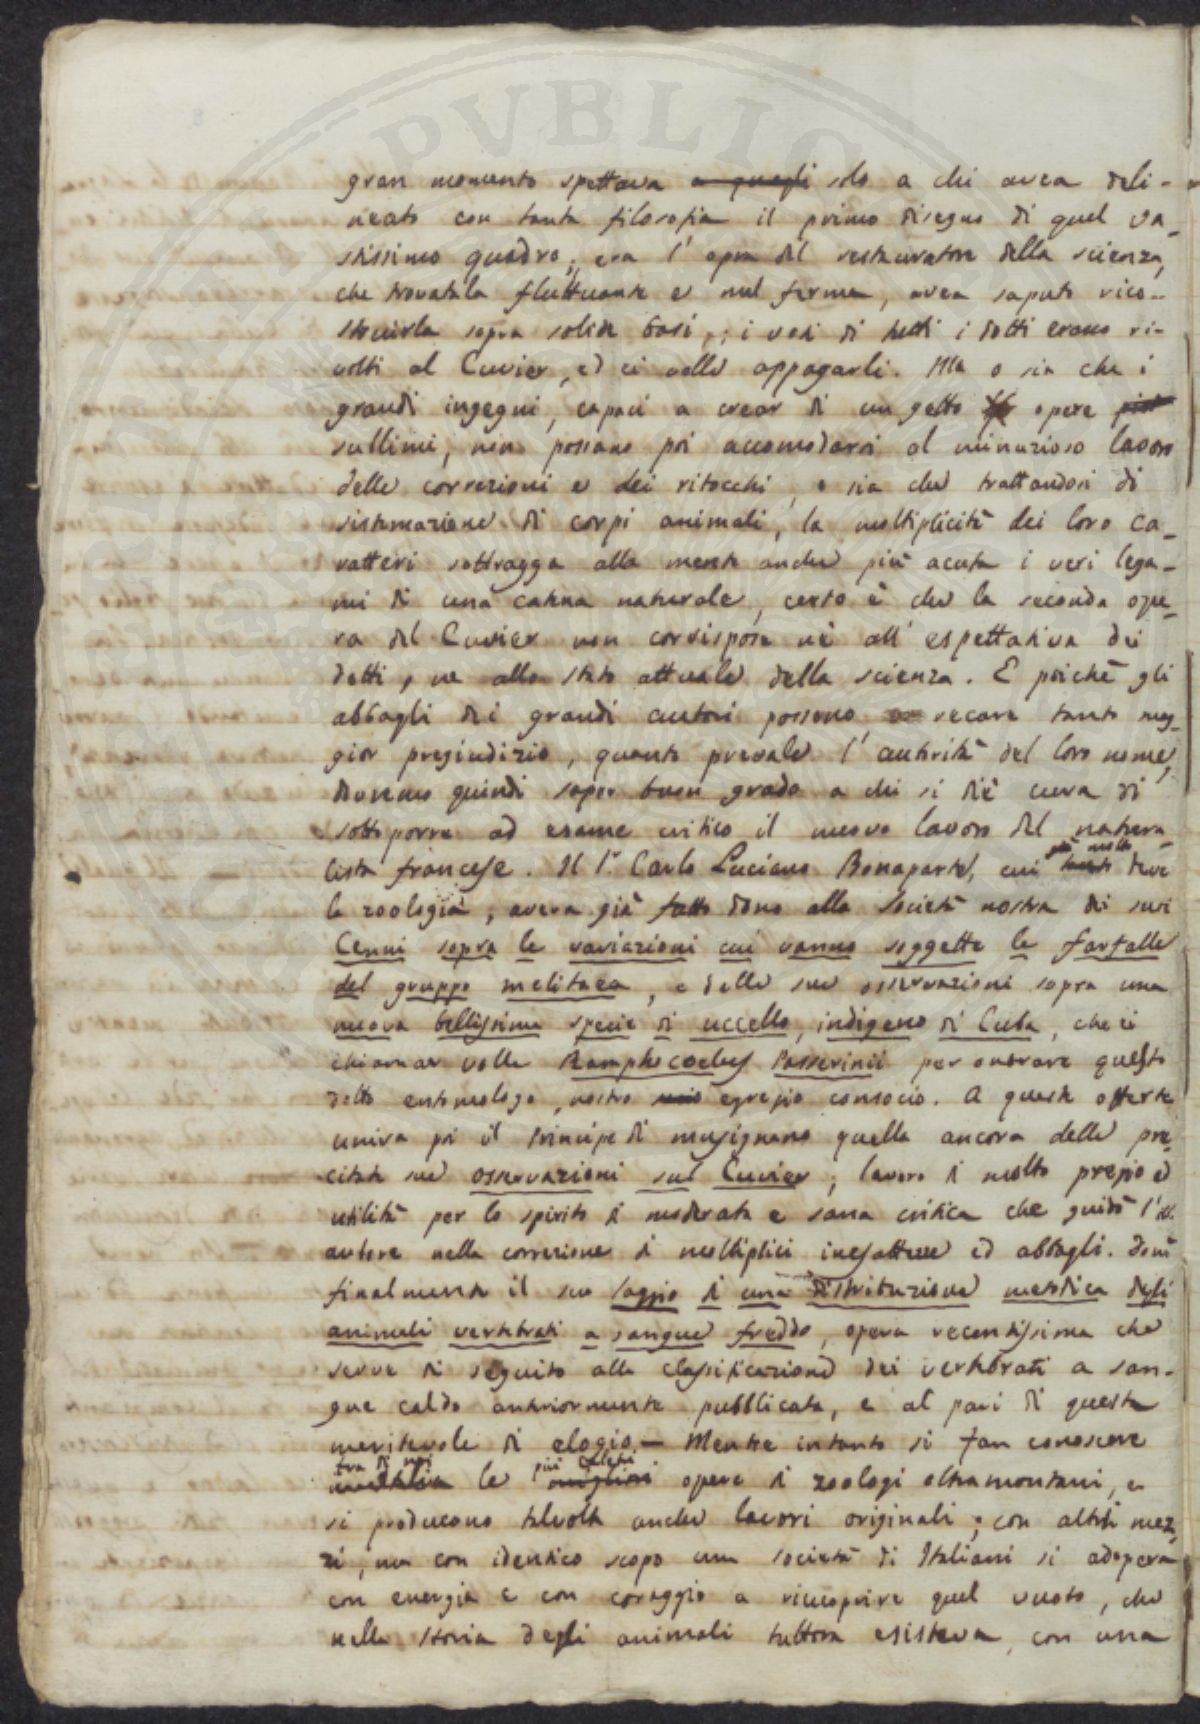 gran momento spettava a quegli solo a chi avea deli-
neato con tanta filosofia il primo disegno di quel va-
stissimo quadro; era l'opra del restauratore della scienza,
che trovatala fluttuante e mal ferma, avea saputo rico-
struirla sopra solide basi; i voti di tutti i dotti erano ri-
volti al Cuvier, ed ei volle appagarli. Ma o sia che i
grandi ingegni, capaci a crear di un getto opere più
sublimi, non possano poi accomodarsi al minuzioso lavoro
delle correzioni e dei ritocchi, o sia che trattandosi di
sistemazione di corpi animali, la moltiplicità dei loro ca-
ratteri sottragga alla mente anche più acuta i veri lega-
mi di una catena naturale, certo è che la seconda ope-
ra del Cuvier non corrispose nè all'espettativa dei
dotti, ne allo stato attuale della scienza. E poichè gli
abbagli dei grandi autori possono recare tanto mag-
gior pregiudizio, quanto prevale l'autorità del loro nome,
dovremo quindi saper buon grado a chi si diè cura di
sottoporre ad esame critico il nuovo lavoro del natura-
lista francese. Il Pr Carlo Luciano Bonaparte, cui già molto tanto deve
la zoologia, aveva già fatto dono alla Società nostra dei suoi
Cenni sopra le variazioni cui vanno soggette le farfalle
del gruppo melitaea, e delle sue osservazioni sopra una
nuova bellissima specie di uccello, indigeno di Cuba, che ei
chiamar volle Ramphocoelus Passerinii per onorare questo
dotto entomologo, nostro mio egregio consocio. A queste offerte
univa poi il Principe di Musignano quella ancora delle pre-
citate sue osservazioni sul Cuvier, lavoro di molto pregio ed
utilità per lo spirito di moderata e sana critica che guidò l'ill.
autore nella correzione di moltiplici inesattezze ed abbagli. Donò
finalmente il suo saggio di una distribuzione metodica degli
animali vertebrati a sangue freddo, opera recentissima che
serve di seguito alla classificazione dei vertebrati a san-
gue caldo anteriormente pubblicata, e al pari di questa
meritevole di elogio — Mentre intanto si fan conoscere
tra di noi le più celebri migliori opere di zoologi oltramontani, e
si producono talvolta anche lavori originali; con altri mez-
zi, ma con identico scopo una società di Italiani si adopera
con energia e con coraggio a ricuoprire quel vuoto, che
nella storia degli animali tuttora esisteva, con una